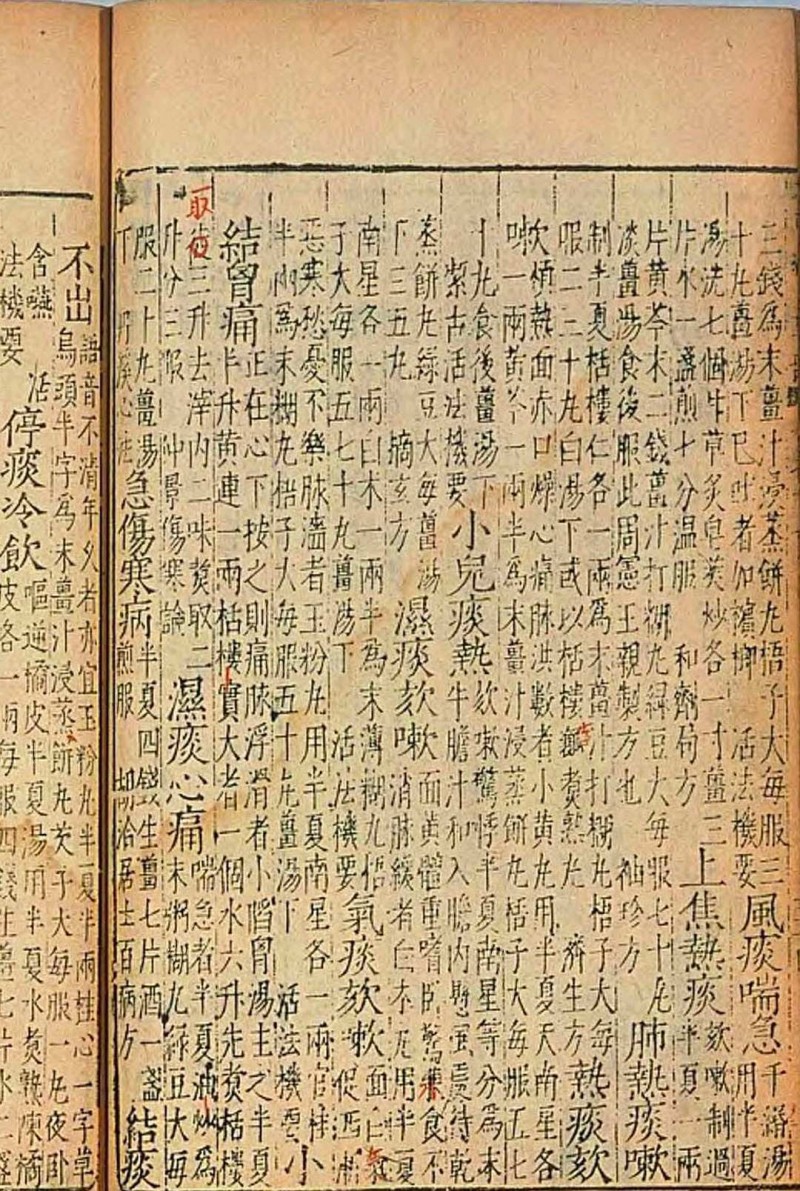 三錢為末薑汁浸蒸餅丸梧子大每服三
十丸薑湯下已吐者加檳榔 活法機要
風痰喘急
千緡湯
用半夏
湯洗七個甘草炙皂莢炒各一寸薑三
片水一盞煎七分溫服 和劑局方
上焦熱痰
欬嗽制過
半夏一兩
片黃芩末二錢薑汁打糊丸綠豆大每服七十丸
淡薑湯食後服此周憲王親製方也 袖珍方
肺熱痰嗽
制半夏栝樓仁各一兩為末薑汁打糊丸梧子大每
服二三十丸白湯下或以栝樓瓤煮熟丸 濟生方
熱痰欬
嗽
煩熱面赤口燥心痛脉洪數者小黃丸用半夏天南星各
一兩黃芩一兩半為末薑汁浸蒸餅丸梧子大每服五七
十丸食後薑湯下
潔古活法機要
小兒痰熱
欬嗽驚悸半夏南星等分為末
牛膽汁和入膽內懸風處待乾
蒸餅丸綠豆大每薑湯
下三五丸 摘玄方
濕痰欬嗽
面黃體重嗜臥驚兼食不
消脉緩者白朮丸用半夏
南星各一兩白朮一兩半為末薄糊丸梧
子大每服五七十丸薑湯下 活法機要
氣痰欬嗽
面白氣
促洒淅
惡寒愁憂不樂脉濇者玉粉丸用半夏南星各一兩官桂
半兩為末糊丸梧子大每服五十丸薑湯下 活法機要
小
結胷痛
正在心下按之則痛脉浮滑者小陷胷湯主之半夏
半升黃連一兩栝樓實大者一個水六升先煮栝樓
取三升去滓內二味煮取二
升分三服 仲景傷寒論
濕痰心痛
喘急者半夏油炒為
末粥糊丸綠豆大每
服二十丸薑湯
下 丹溪心法
急傷寒病
半夏四錢生薑七片酒一盞
煎服 胡洽居士百病方
結痰
不出
語音不清年久者亦宜玉粉丸半夏半兩桂心一字草
烏頭半字為末薑汁浸蒸餅丸芡子大每服一丸夜卧
含嚥 活
法機要
停痰冷飲
嘔逆橘皮半夏湯用半夏水煮熟陳橘
皮各一兩每服四錢生薑七片水二盞